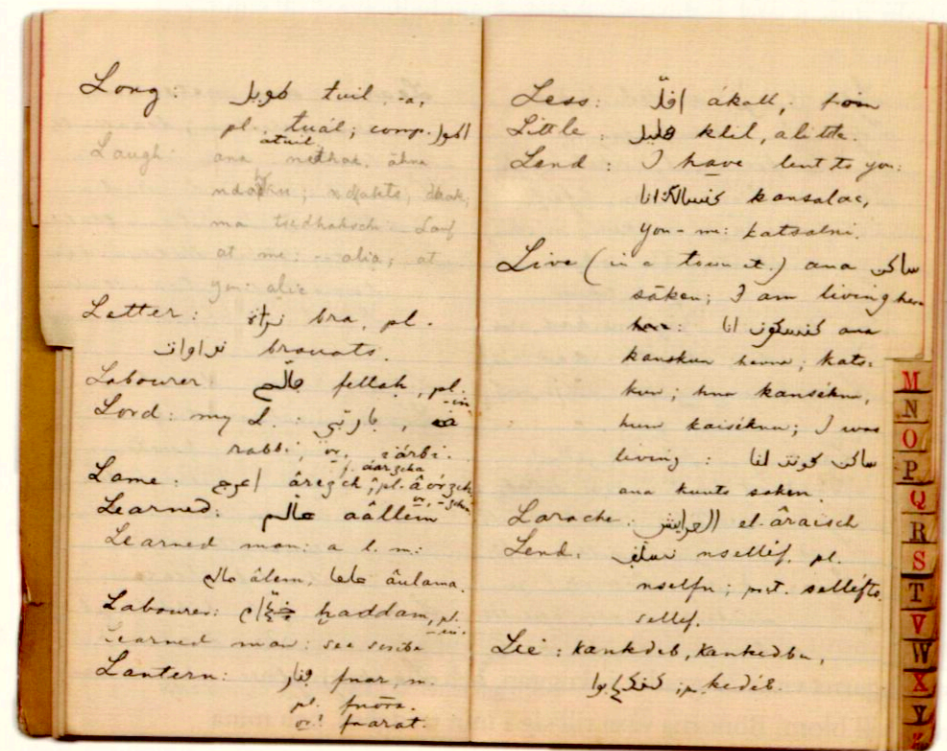 Long: طويل tuil, -a,
pl. tuál; comp. اطول
atuil
Laugh: ana nedhak, ahna
ma tedhaksch. Lauf
at me: - alia; at
you: alic
Letter: براة bra, pl.
براوات brauats.
Labourer فلاح fellah, pl. -in
Lord: my L.: يا ربي,
rabbi, or, iárbi.
Lame: اعرج âregch, f. âargcha, pl. âórgch
or, -gchin
Learned: عالم aâllem
Learned man: a l. m:
عالم âlem, علما âulama.
Labourer: خدام haddam, pl. -in.
Learned man: see scribe
Lantern: فنار fnar, m.
pl. fnōra.
or: fnarat.
Less: اقل ákall, from
Little: قليل klil, a little.
Lend: I have lent to you:
kansalac,
you-me: katsalni.
Live (in a town et.) ana ساكن
sāken; I am living here
انا ana
kanskun henna; kats-
kun; hna kanséknu,
hum kaiséknu; I was
living: انا كونت ساكن
ana kunts saken.
Larache: العرايش el-âraisch
Lend: نسلف nsellif, pl.
nselfu; part. sellefts,
sellef.
Lie: kankdeb, kankedbu,
p. kedéb.
M
N
O
P
Q
R
S
T
V
W
X
Y
Z